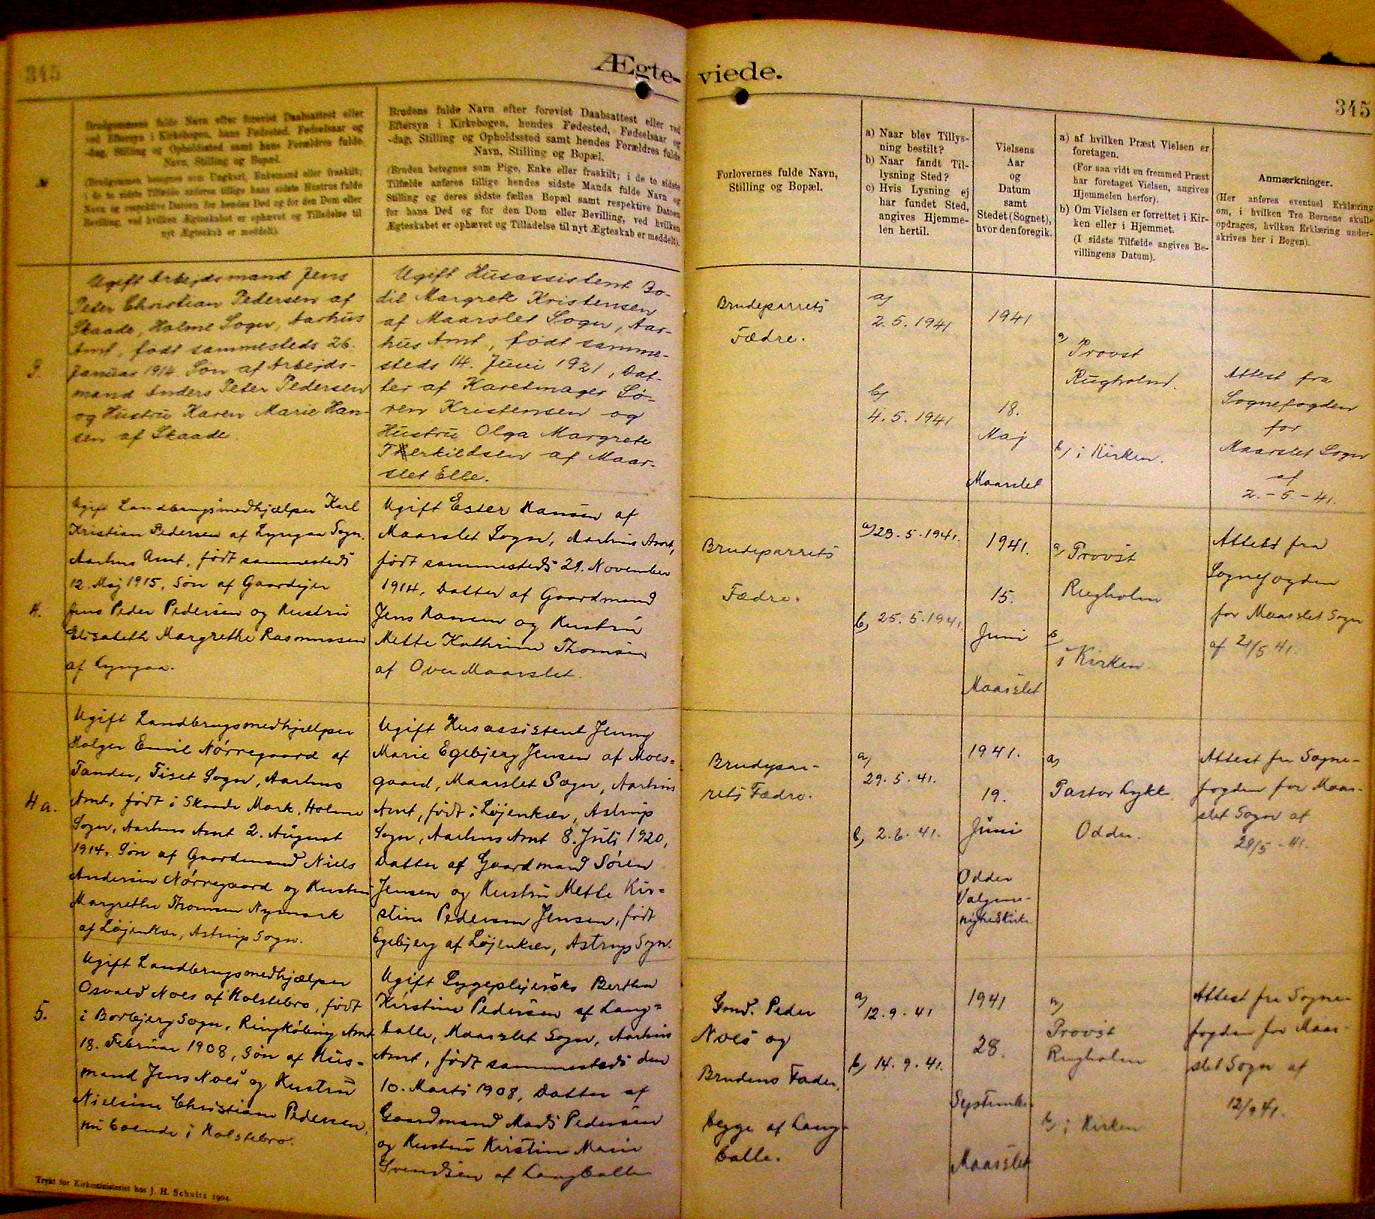 345
Ægte-
viede.
345
Brudgommens fulde Navn efter forevist Daabsattest eller
ved Eftersyn i Kirkebogen, hans Fødested, Fødselsaar og
-dag, Stilling og Opholdssted samt hans Forældres fulde
Navn, Stilling og Bopæl.
(Brudgommen betegnes som Ungkarl, Enkemand eller fraskilt;
i de to sidste Tilfælde anføres tillige hans sidste Hustrus fulde
Navn og respektive Datoen for hendes Død og for den Dom eller
Bevilling, ved hvilken Ægteskabet er ophævet og Tilladelse til
nyt Ægteskab er meddelt).
Brudens fulde Navn efter forevist Daabsattest eller ved
Eftersyn i Kirkebogen, hendes Fødested, Fødselsaar og
-dag, Stilling og Opholdssted samt hendes Forældres fulde
Navn, Stilling og Bopæl.
(Bruden betegnes som Pige, Enke eller fraskilt; i de to sidste
Tilfælde anføres tillige hendes sidste Mands fulde Navn og
Stilling og deres sidste fælles Bopæl samt respektive Datoen
for hans Død og for den Dom eller Bevilling, ved hvilken
Ægteskabet er ophævet og Tilladelse til nyt Ægteskab er meddelt).
Forlovernes fulde Navn,
Stilling og Bopæl.
a) Naar blev Tillys-
ning bestilt?
b) Naar fandt Til-
lysning Sted?
c) Hvis Lysning ej
har fundet Sted,
angives Hjemme-
len hertil.
Vielsens
Aar
og
Datum
samt
Stedet (Sognet),
hvor den foregik.
a) af hvilken Præst Vielsen er
foretagen.
(For saa vidt en fremmed Præst
har foretaget Vielsen, angives
Hjemmelen herfor).
b) Om Vielsen er forrettet i Kir-
ken eller i Hjemmet.
(I sidste Tilfælde angives Be-
villingens Datum).
Anmærkninger.
(Her anføres eventuel Erklæring
om, i hvilken Tro Børnene skulle
opdrages, hvilken Erklæring under-
skrives her i Bogen).
3.
Ugift Arbejdsmand Jens
Peter Christian Pedersen af
Skaade, Holme Sogn, Aarhus
Amt, født sammesteds 26.
Januar 1914. Søn af Arbejds-
mand Anders Peter Pedersen
og Hustru Karen Marie Han-
sen af Skaade.
Ugift Husassistent Bo-
dil Margrete Kristensen
af Maarslet Sogn, Aar-
hus Amt, født samme-
steds 14. Juni 1921, Dat-
ter af Karetmager Sø-
ren Kristensen og
Hustru Olga Margrete
Therkildsen af Maar-
slet Elle.
Brudeparrets
Fædre.
a)
2.5.1941
b)
4.5.1941
1941
18.
Maj
Maarslet
a)
Provst
Rugholm.
b) i Kirken.
Attest fra
Sognefogden
for
Maarslet Sogn
af
2.-5-41.
4.
Ugift Landbrugsmedhjælper Karl
Kristian Pedersen af Lyngaa Sogn,
Aarhus Amt, født sammesteds
12. Maj 1915, Søn af Gaardejer
Jens Peder Pedersen og Hustru
Elisabeth Margrethe Rasmussen
af Lyngaa.
Ugift Ester Hansen af
Maarslet Sogn, Aarhus Amt,
født sammesteds 29. November
1914, Datter af Gaardmand
Jens Hansen og Hustru
Mette Kathrine Thomsen
af Over Maarslet.
Brudeparrets
Fædre.
a) 23.5.1941.
b) 25.5.1941
1941.
15.
Juni
Maarslet
a) Provst
Rugholm
b)
i Kirken.
Attest fra
Sognefogden
for Maarslet Sogn
af 21/5 41.
4a.
Ugift Landbrugsmedhjælper
Holger Emil Nørregaard af
Tander, Tiset Sogn, Aarhus
Amt, født i Skaade Mark, Holme
Sogn, Aarhus Amt 2. August
1914, Søn af Gaardmand Niels
Andersen Nørregaard og Hustru
Margrethe Thomsen Nymark
af Løjenkær, Astrup Sogn.
Ugift Husassistent Jenny
Marie Egebjerg Jensen af Moes-
gaard, Maarslet Sogn, Aarhus
Amt, født i Løjenkær, Astrup
Sogn, Aarhus Amt 8. Juli 1920,
Datter af Gaardmand Søren
Jensen og Hustru Mette Kir-
stine Pedersen Jensen, født
Egebjerg af Løjenkær, Astrup Sogn.
Brudepar-
rets Fædre.
a)
29.5.41.
b) 2.6.41.
1941.
19.
Juni
Odder
Valgme-
nighedskirke
a)
Pastor Lykke
Odder.
Attest fra Sogne-
fogden for Maar-
slet Sogn af
28/5-41.
5.
Ugift Landbrugsmedhjælper
Osvald Noes af Holstebro, født
i Borbjerg Sogn, Ringkøbing Amt
18. Februar 1908, Søn af Hus-
mand Jens Noes og Hustru
Nielsine Christiane Pedersen,
nu boende i Holstebro.
Ugift Sygeplejerske Bertha
Kirstine Pedersen af Lang-
balle, Maarslet Sogn, Aarhus
Amt, født sammesteds den
10. Marts 1908, Datter af
Gaardmand Mads Pedersen
og Hustru Kirstine Marie
Svendsen af Langballe
Gmd. Peder
Noes og
Brudens Fader,
begge af Lang-
balle.
a)
12.9.41
b) 14.9.41.
1941
28.
September
Maarslet
a)
Provst
Rugholm
b) i Kirken
Attest fra Sogne-
fogden for Maar-
slet Sogn af
12/9 41.
Trykt for Kirkeministeriet hos J. H. Schultz 1904.